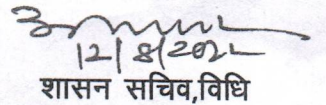 12/8/202
शासन सचिव,विधि